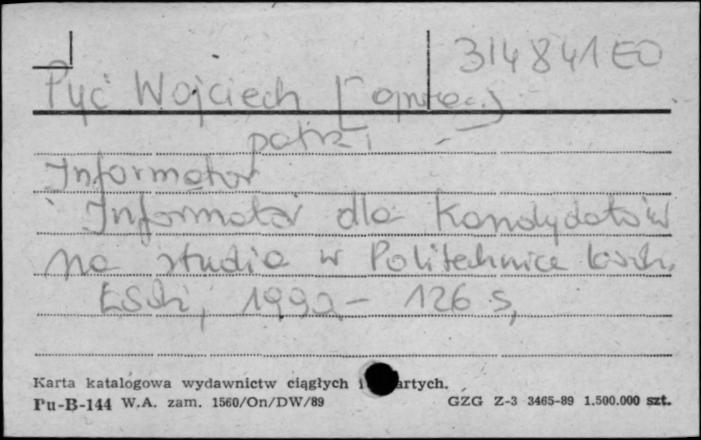 314841 EO
Pyć Wojciech [oprac.]
patrz
Informator
Informator dla kandydatów
na studia w Politechnice
1992 - 126 s,
Karta katalogowa wydawnictw ciągłych i artych.
Pu-B-144 W.A. zam. 1560/On/DW/89 GZG Z-3 3465-89 1.500.000 szt.